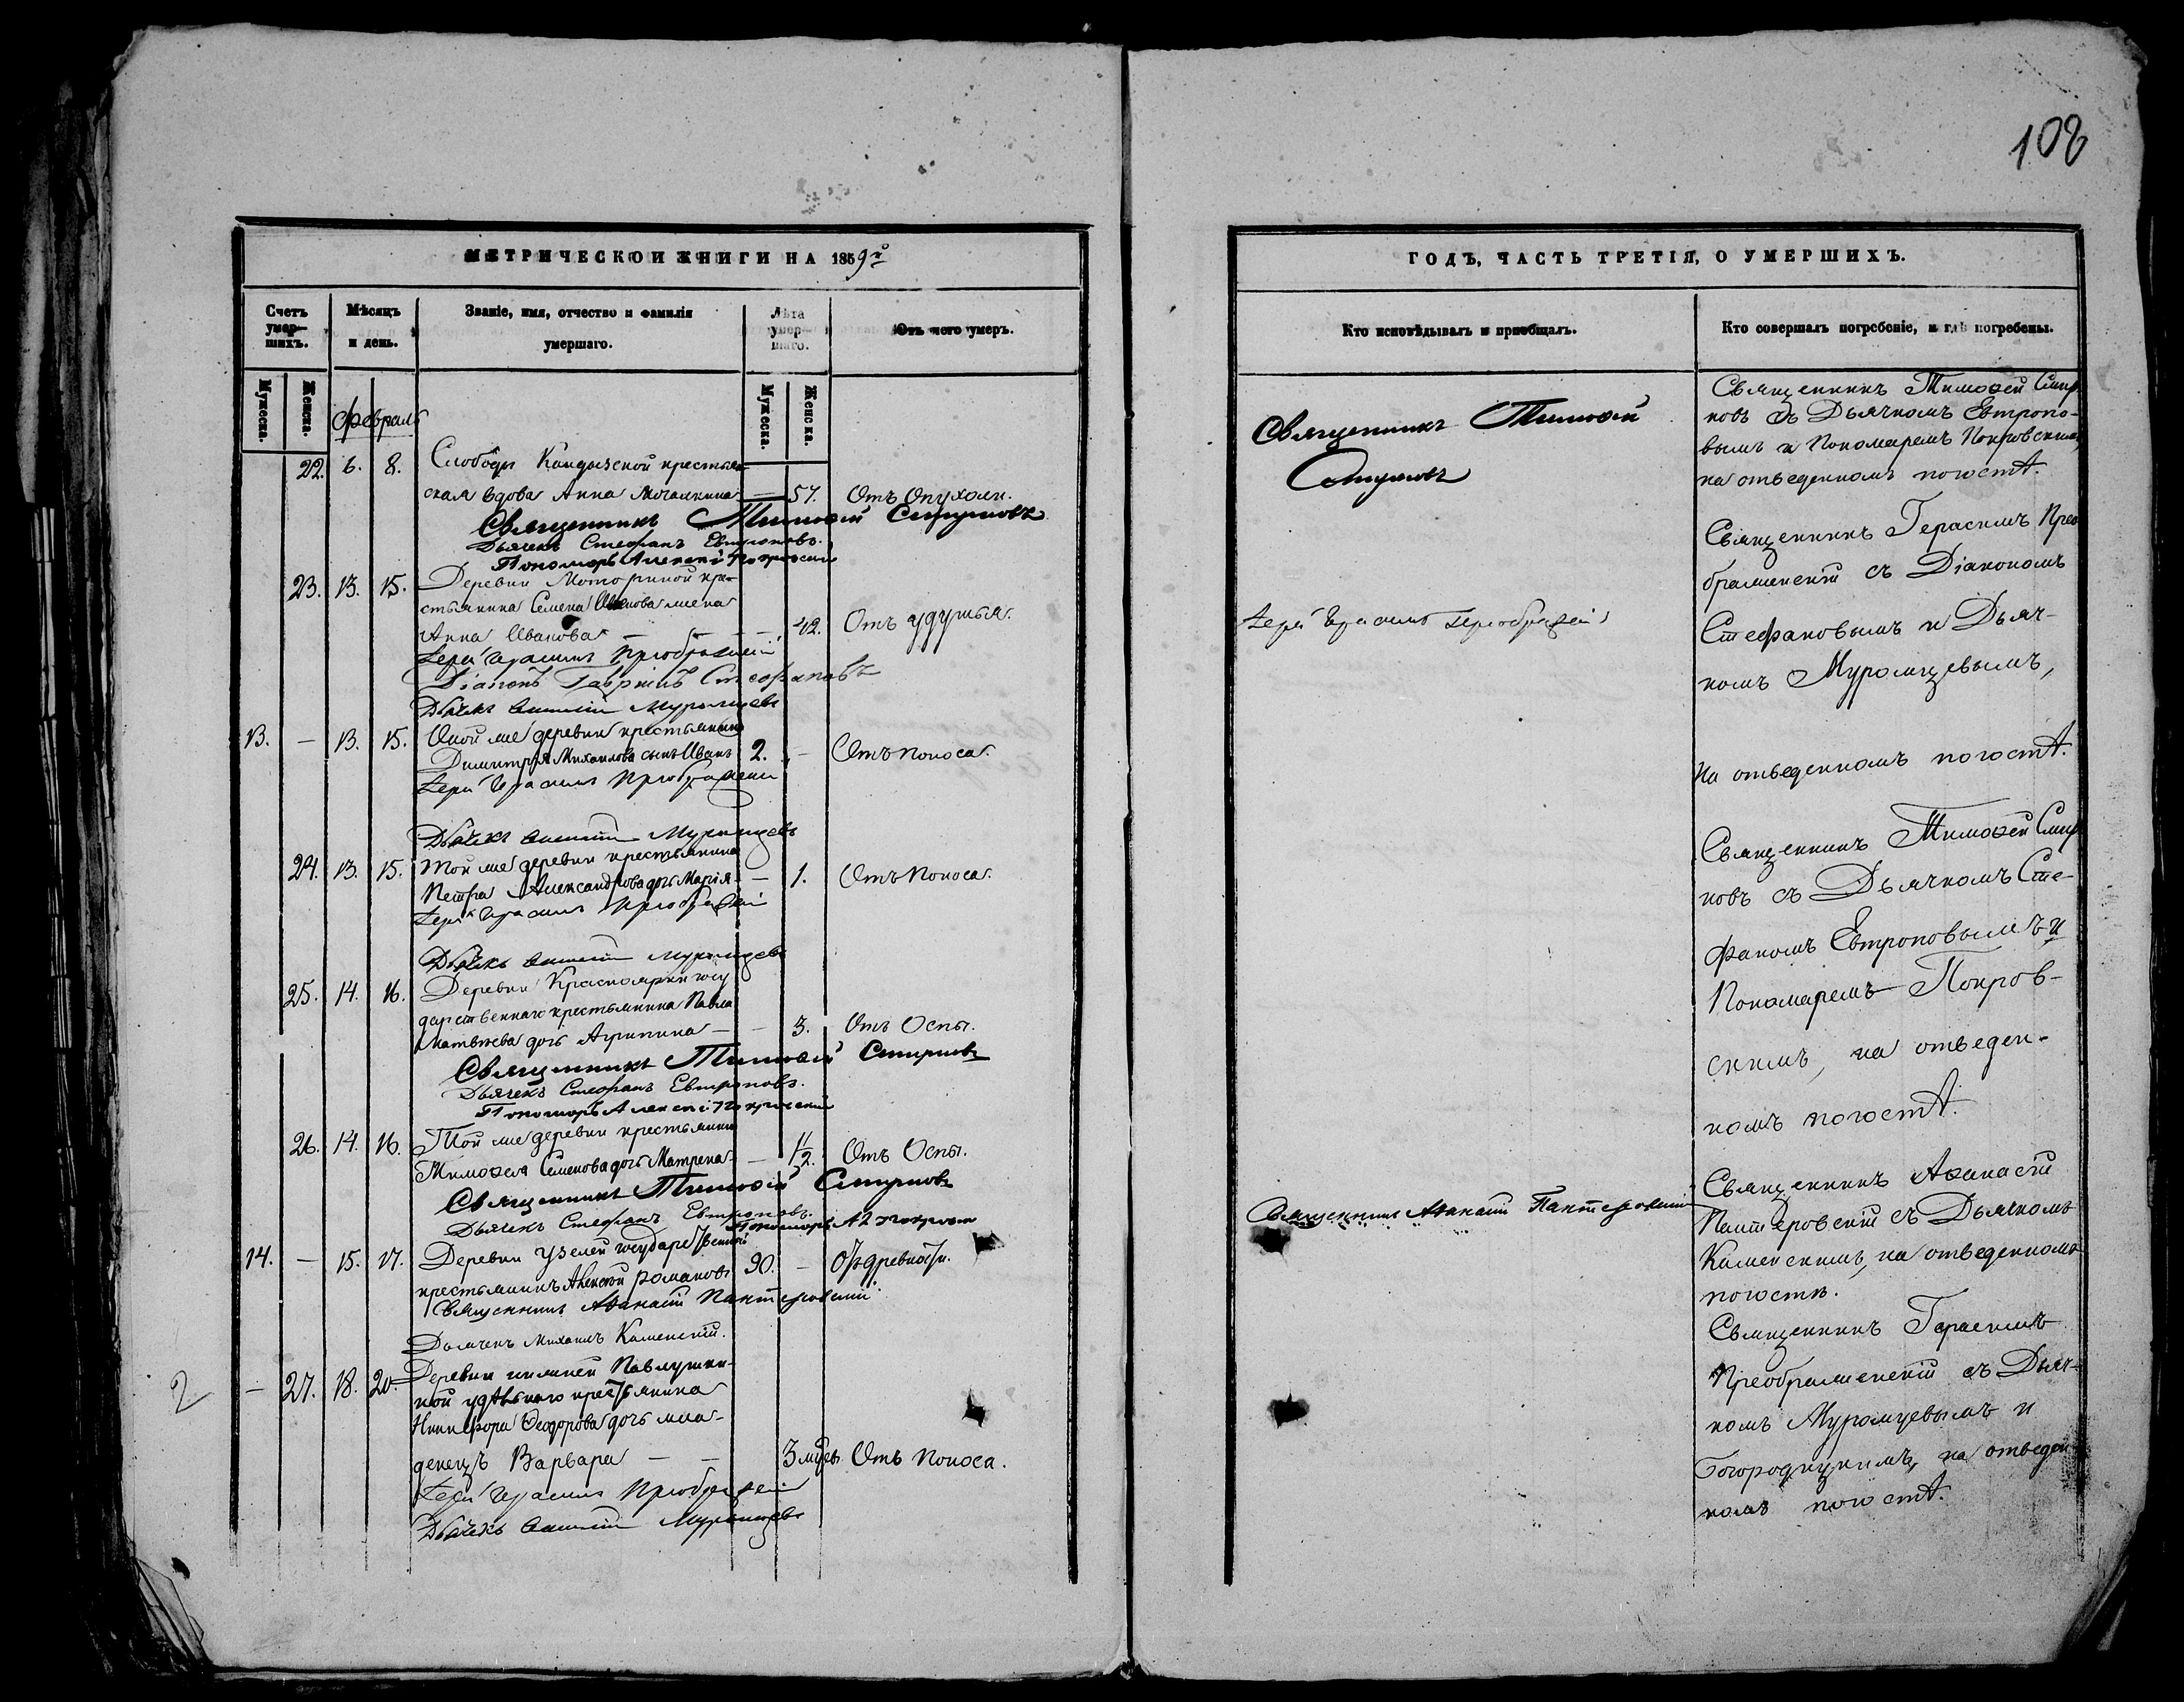 108
МЕТРИЧЕСКОЙ КНИГИ НА 1859й
Счетъ умер-шихъ.
Мѣсяцъ и день.
Званіе, имя, отчество и фамилія умершаго.
Лѣта умер-шаго.
Отъ чего умеръ.
Мужеска.
Женска.
Мужеска.
Женска.
Февраль
22. 6. 8. Слободы Кандызской крестьян-
ская вдова Анна Мочалкина — 57. Отъ Опухоли.
Священникъ Тимофей Смирновъ
Дьячекъ Стефанъ Евтроповъ.
Пономарь Алексей Покровский
23. 13. 15. Деревни Моториной кре-
стьянина Семена жена
Анна Иванова — — — 42. Отъ удушья.
Іерей Герасимъ Преображенский
Діаконъ Гавриилъ Стефановъ
Дьячекъ Муромцевъ
13. — 13. 15. Оной же деревни крестьянина
Димитрія Михайлова сынъ Иванъ 2. — Отъ поноса.
Іерей Герасимъ Преображенский
Дьячекъ Муромцевъ
24. 13. 15. Той же деревни крестьянина
Петра Александрова дочь Марія — 1. Отъ Поноса.
Іерей Герасимъ Преображенский
Дьячекъ Муромцевъ
25. 14. 16. Деревни Красноярки госу
дарственнаго крестьянина Павла
Матвѣева дочь Агрипина — — 3. Отъ Оспы.
Священникъ Тимофей Смирновъ
Дьячекъ Стефанъ Евтроповъ.
Пономарь Алексей Покровский
26. 14. 16. Той же деревни крестьянина
Тимофея Семенова дочь Матрена — 1/2. Отъ Оспы.
Священникъ Тимофей Смирновъ
Дьячекъ Стефанъ Евтроповъ.
Пономарь Ал Покровск
14. — 15. 17. Деревни Узелей государственный
крестьянинъ Алексей Романовъ 90. — Отъ древности.
Священникъ Афанасій Пантеровский
Дьячекъ Михаилъ Каменскій.
2
— 27. 18. 20. Деревни нижней Павлушки-
ной удѣльнаго крестьянина
Никифора Феодорова дочь мла-
денецъ Варвара — — 3 мцевъ Отъ Поноса.
Іерей Герасимъ Преображенский
Дьячекъ Муромцевъ
ГОДЪ, ЧАСТЬ ТРЕТІЯ, О УМЕРШИХЪ.
Кто исповѣдывалъ и пріобщалъ.
Кто совершалъ погребеніе, и гдѣ погребены.
Священникъ Тимофей
Смирновъ
Іерей Герасимъ Преображенский
Священникъ Афанасій Пантеровский
Священникъ Тимофей Смир
новъ съ Дьячкомъ Евтропо-
вымъ и Пономаремъ Покровскимъ,
на отведенномъ погостѣ.
Священникъ Герасимъ Прео
браженскій съ Діакономъ
Стефановымъ и Дьяч-
комъ Муромцевымъ,
на отведенномъ погостѣ.
Священникъ Тимофей Смир
новъ съ Дьячкомъ Сте-
фаномъ Евтроповымъ и
Пономаремъ Покров-
скимъ, на отведен-
номъ погостѣ.
Священникъ Афанасій
Пантеровскій съ Дьячкомъ
Каменскимъ, на отведенномъ
погостѣ.
Священникъ Герасимъ
Преображенскій съ Дьяч-
комъ Муромцевымъ и
Богородицкимъ, на отведен
номъ погостѣ.